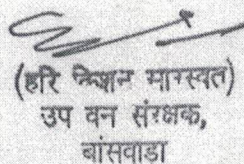 (हरि किशन सारस्वत)
उप वन संरक्षक,
बांसवाडा